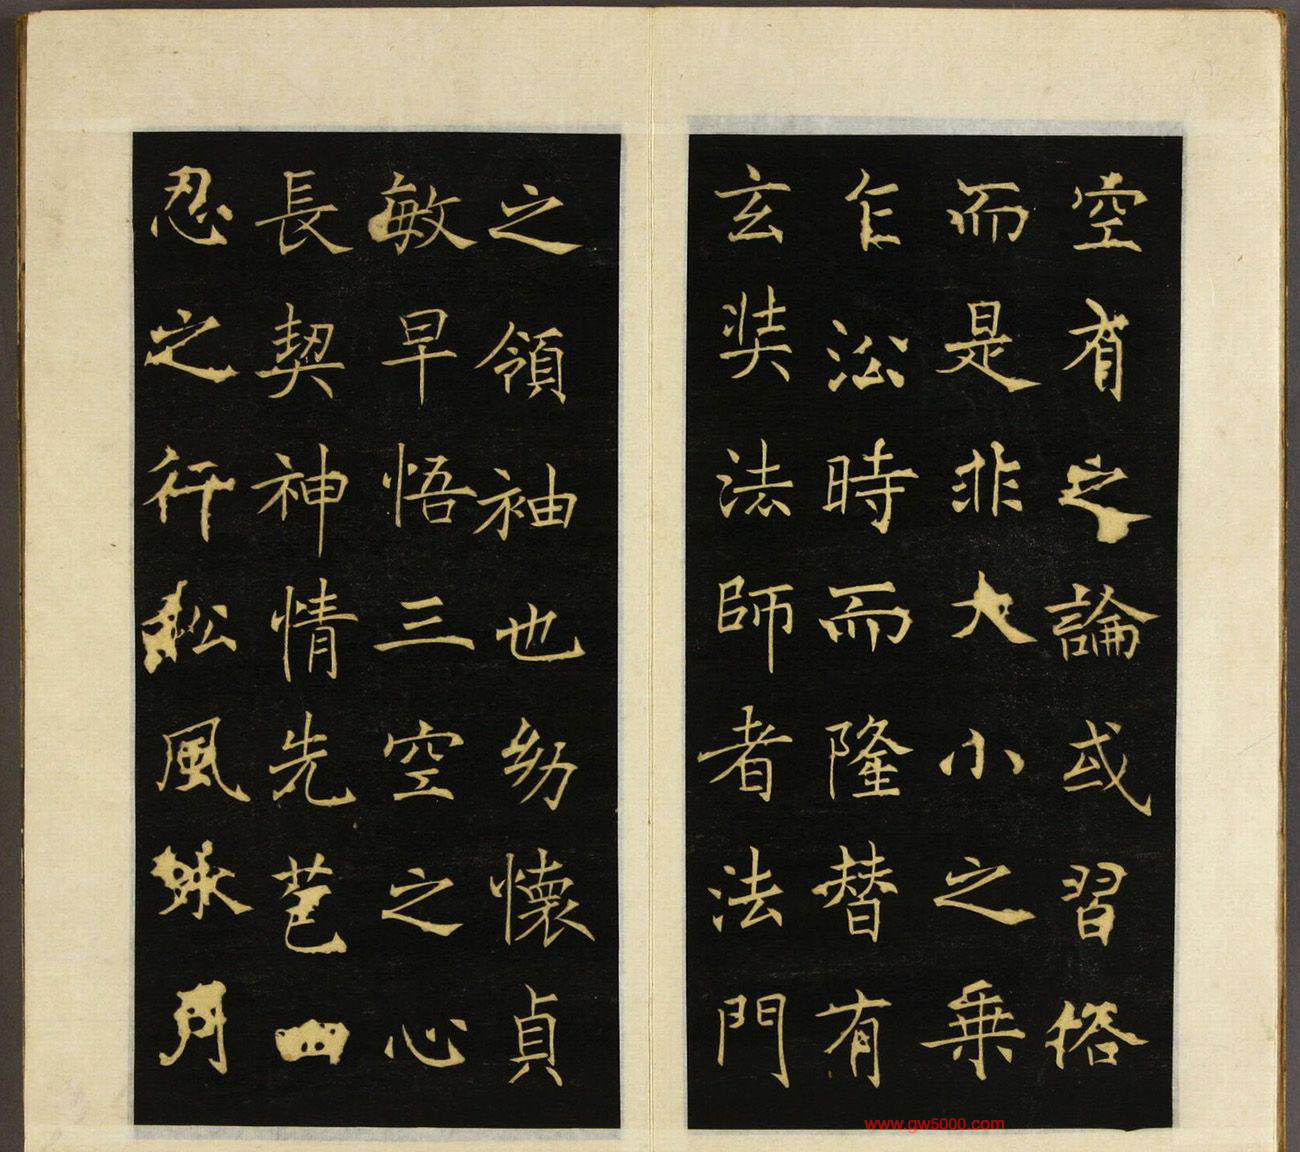 空有之論或習俗
而是非大小之乗
乍沿時而隆替有
玄奘法師者法門
之領袖也幼懷貞
敏早悟三空之心
長契神情先苞四
忍之行松風水月
www.gw5000.com